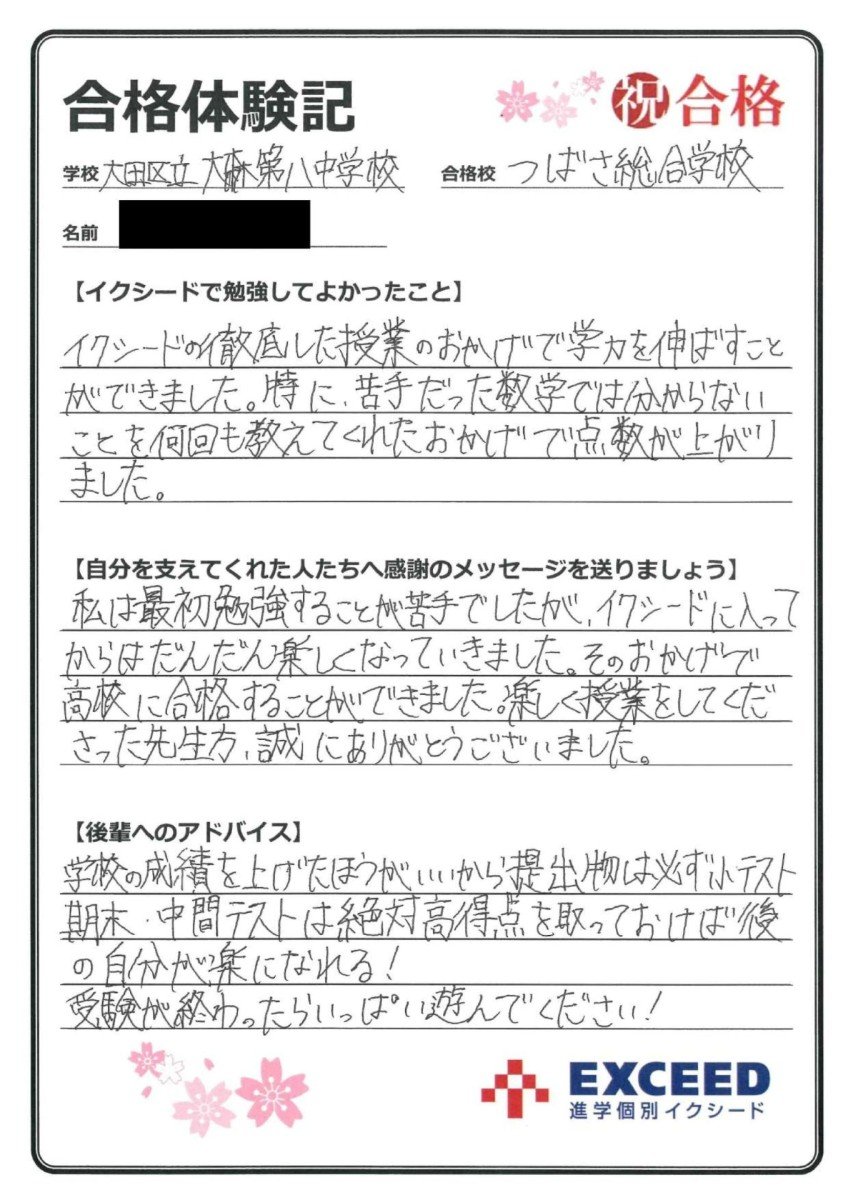 合格体験記
祝 合格
学校 大田区立大森第八中学校
合格校 つばさ総合学校
名前
【イクシードで勉強してよかったこと】
イクシードの徹底した授業のおかげで学力を伸ばすこと
ができました。特に、苦手だった数学では分からない
ことを何回も教えてくれたおかげで点数が上がり
ました。
【自分を支えてくれた人たちへ感謝のメッセージを送りましょう】
私は最初勉強することが苦手でしたが、イクシードに入って
からはだんだん楽しくなっていきました。そのおかげで
高校に合格することができました。楽しく授業をしてくだ
さった先生方、誠にありがとうございました。
【後輩へのアドバイス】
学校の成績を上げたほうがいいから提出物は必ず小テスト
期末・中間テストは絶対高得点を取っておけば後
の自分が楽になれる!
受験が終わったらいっぱい遊んでください!
EXCEED
進学個別イクシード